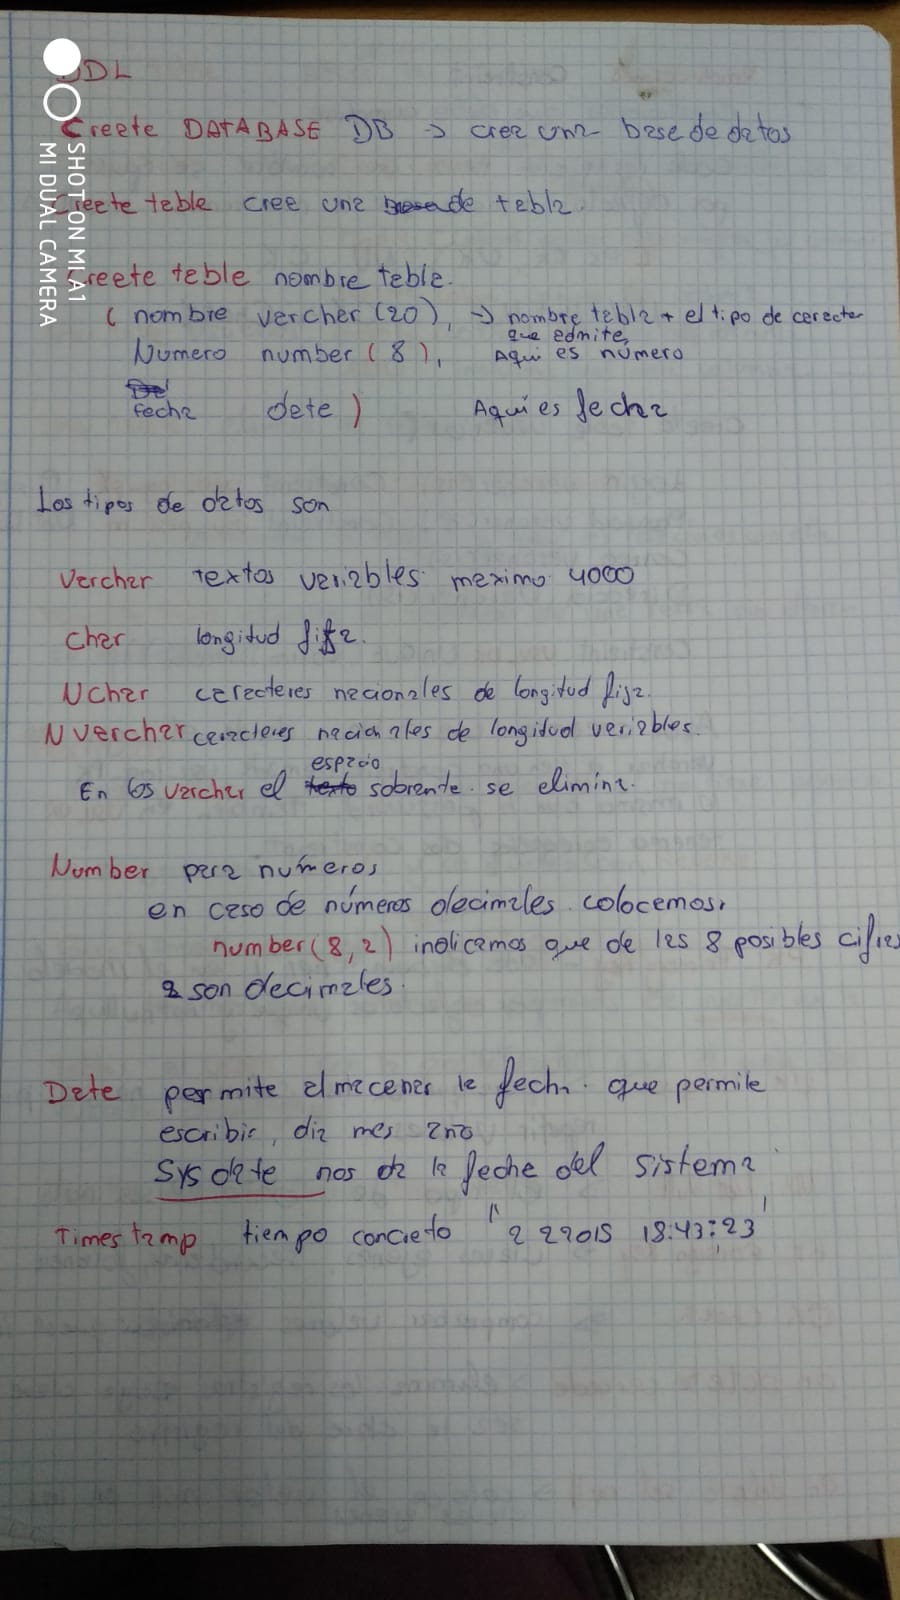 DDL
Create DATABASE DB → crea una base de datos
Create table cree una tabla
Create table nombre tabla.
( nombre varchar (20), → nombre tabla + el tipo de caracter
que admite,
Numero number ( 8 ), Aqui es número
fecha date ) Aquí es fecha
Los tipos de datos son
Varchar textos variables maximo 4000
Char longitud fija.
NChar caracteres nacionales de longitud fija.
N varchar caracteres nacionales de longitud variables.
espacio
En los varchar el texto sobrante se elimina.
Number para numeros,
en caso de números decimales colocamos,
number (8,2) indicamos que de las 8 posibles cifras
2 son decimales.
Date permite almacenar la fecha que permite
escribir, dia mes año
Sysdate nos da la fecha del sistema
Timestamp tiempo concreto " 2 2 2015 18:43:23'
SHOT ON MI A1
MI DUAL CAMERA